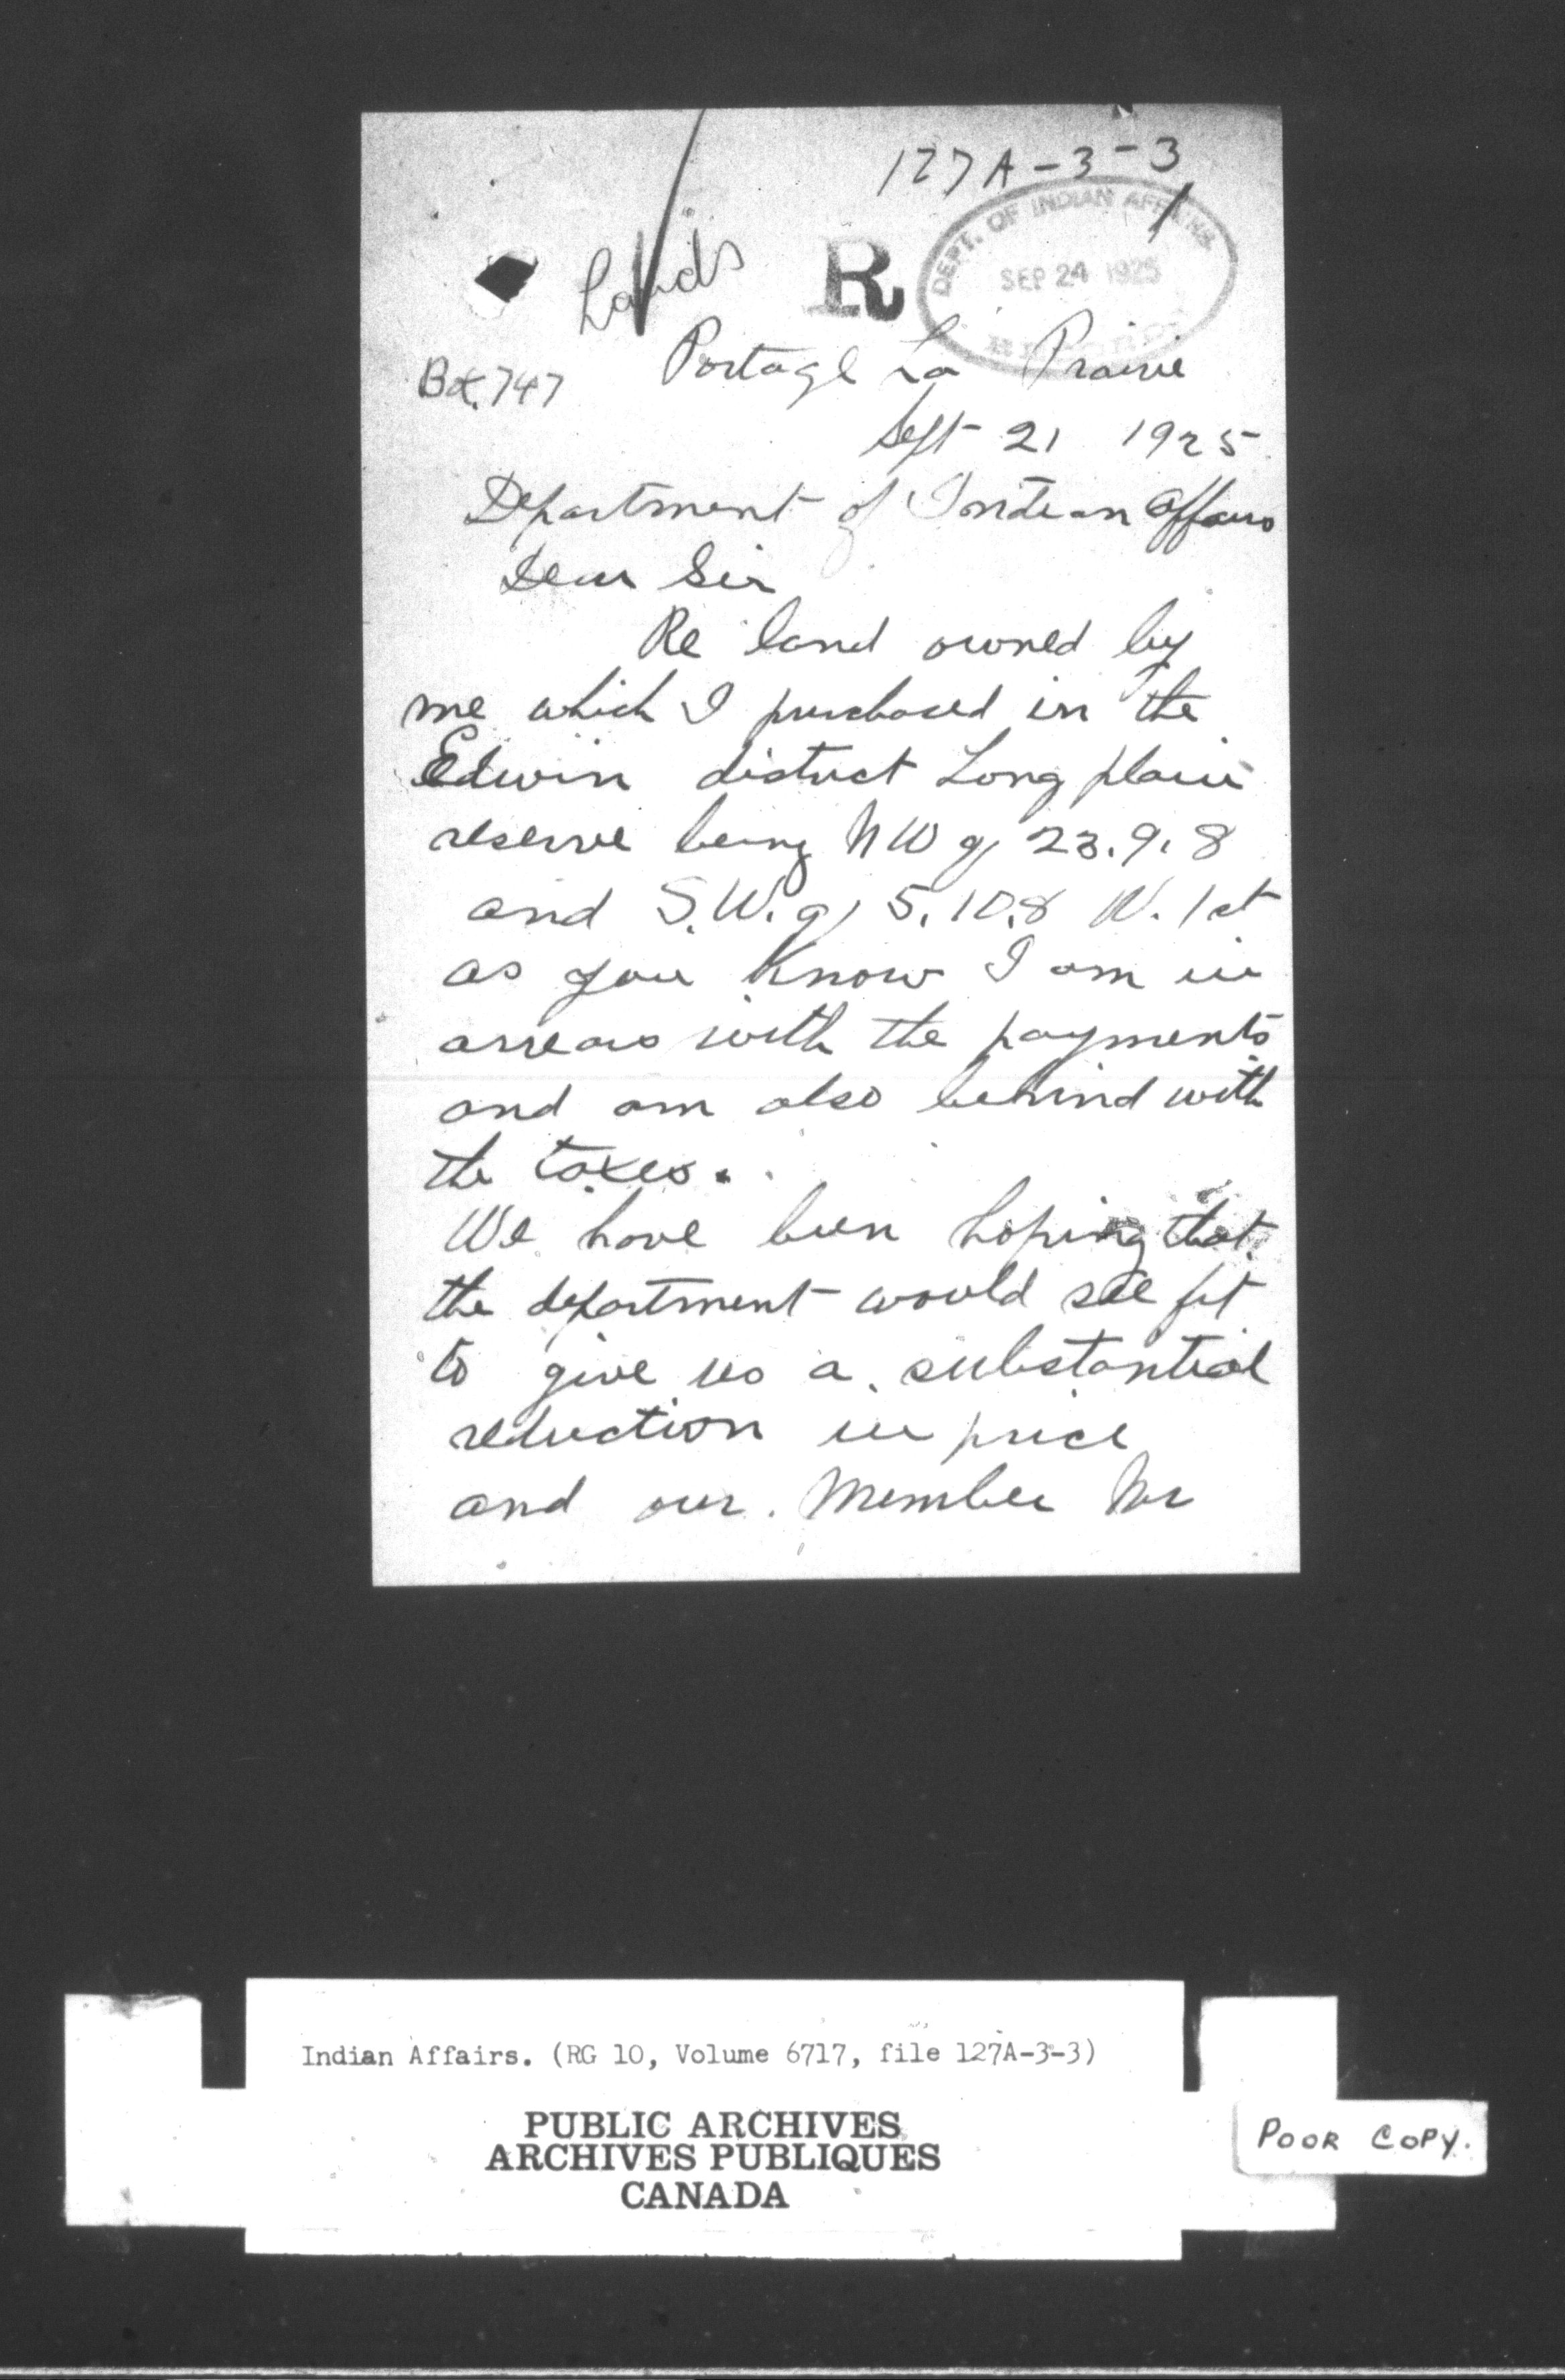 127A-3-3
DEPT. OF INDIAN AFFAIRS
SEP 24 1925
Lands
R
Portage La Prairie
Box 747
Sept 21 1925
Department of Indian Affairs
Dear Sir
Re land owned by
me which I purchased in the
Edwin district Long plain
reserve being NW q 23.9.8
and S.W. q 5.10.8 W. 1st
as you Know I am in
arrears with the payments
and am also behind with
the taxes.
We have been hoping that
the department would see fit
to give us a substantial
reduction in price
and our Member Mr
Indian Affairs. (RG 10, Volume 6717, file 127A-3-3)
PUBLIC ARCHIVES
ARCHIVES PUBLIQUES
CANADA
POOR COPY.